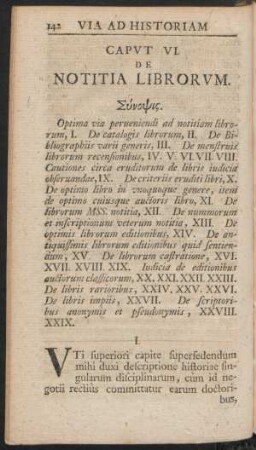 142 VIA AD HISTORIAM
CAPVT VI.
DE
NOTITIA LIBRORVM.
Σύνοψις.
Optima via perueniendi ad notitiam libro-
rum, I. De catalogis librorum, II. De Bi-
bliographiis varii generis, III. De menstruis
librorum recensionibus, IV. V. VI. VII. VIII.
Cautiones circa eruditorum de libris iudicia
obseruandae, IX. De criteriis eruditi libri, X.
De optimo libro in vnoquoque genere, item
de optimo cuiusque auctoris libro, XI. De
librorum MSS. notitia, XII. De nummorum
et inscriptionum veterum notitia, XIII. De
optimis librorum editionibus, XIV. De an-
tiquissimis librorum editionibus quid sentien-
dum, XV. De librorum castratione, XVI.
XVII. XVIII. XIX. Iudicia de editionibus
auctorum classicorum, XX. XXI. XXII. XXIII.
De libris rarioribus, XXIV. XXV. XXVI.
De libris impiis, XXVII. De scriptori-
bus anonymis et pseudonymis, XXVIII.
XXIX.
I.
VTi superiori capite supersedendum
mihi duxi descriptione historiae sin-
gularum disciplinarum, cum id ne-
gotii rectius committatur earum doctori-
bus,